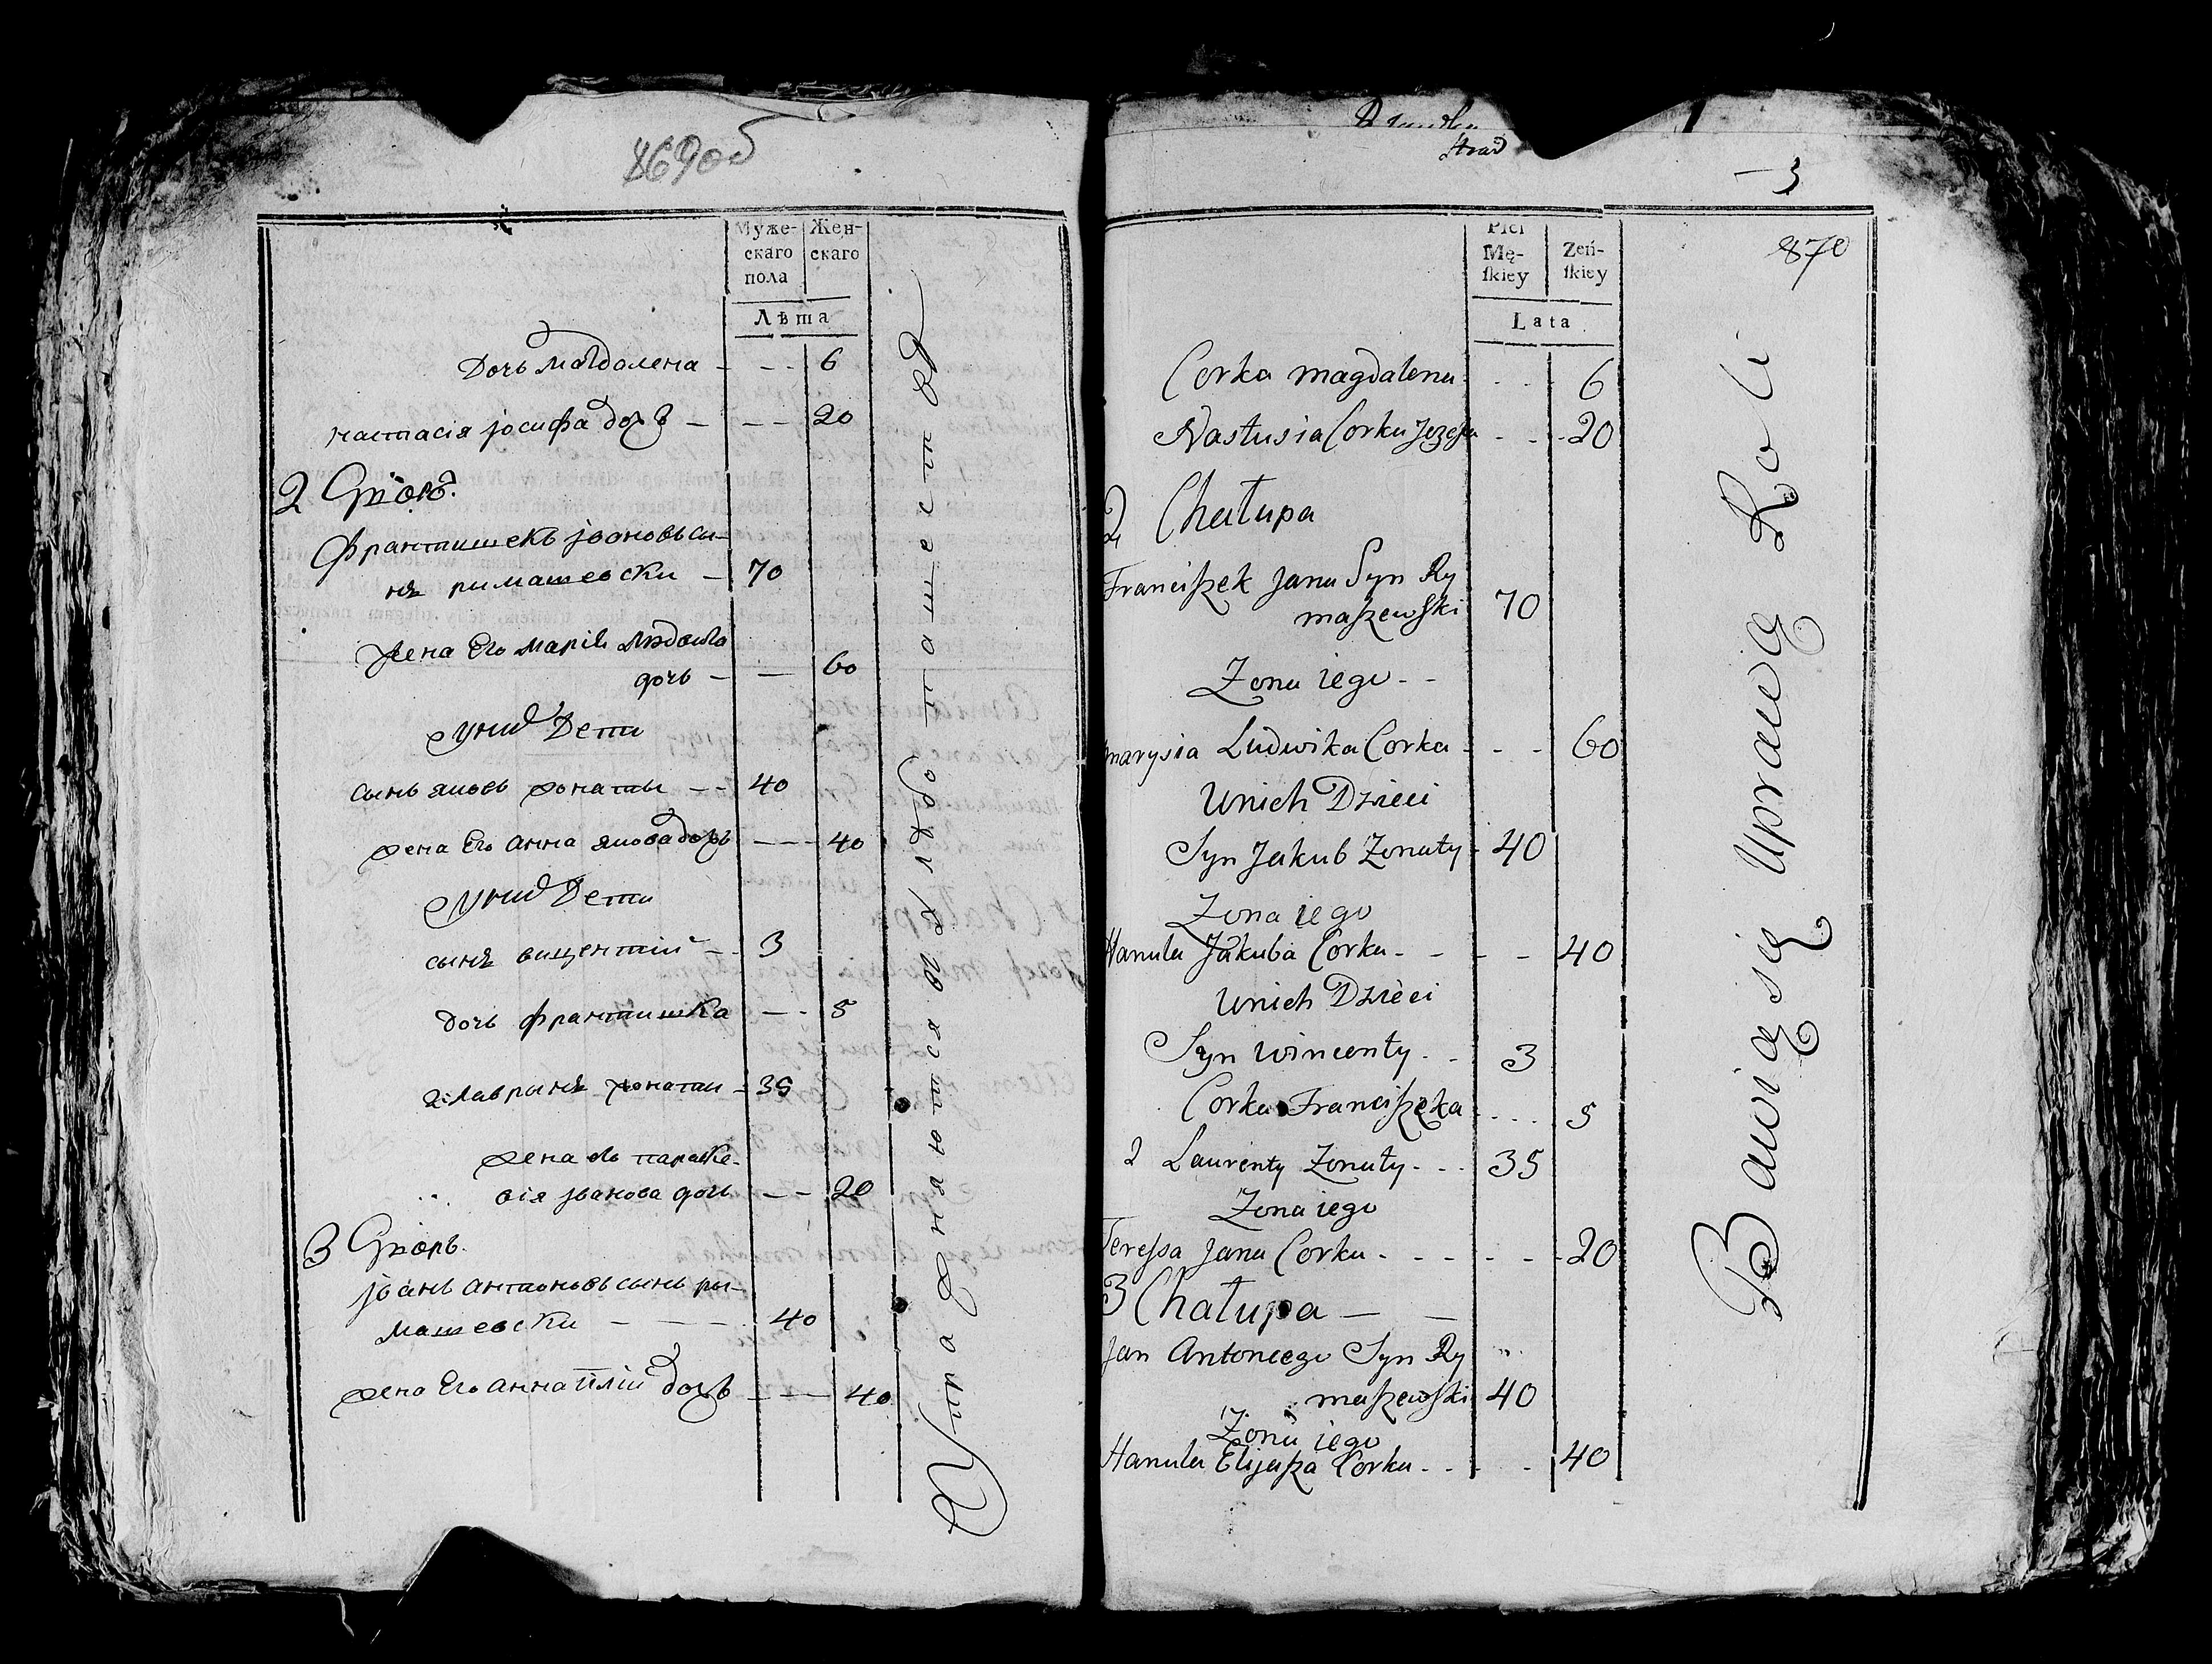 869об
Муже-
скаго
пола
Жен-
скаго
Лѣта
Дочь магдалена - - - 6
настасія јосифа дочь - - - 20
2 Дворъ.
Франтишекъ јвановъ сы-
нъ римашевски - 70
жена Его марія людвига
дочь - - 60
у них Дети
сынъ яковъ женаты - - 40
жена Его анна якова дочь - - - 40
у них Дети
сынъ вицентий - - 3
дочь франтишка - - 5
2 лаврынъ женаты - 35
жена Его параске-
вія јванова дочь - - 20
3 Дворъ.
јванъ антоновъ сынъ ры-
машевски - - - 40
жена Его анна илии дочь - - - 40
Упражняются въ хлебопашестве
3
870
Plci
Mę-
ſkiey
Zeń-
ſkiey
Lata
Corka magdalena - - - 6
Nastusia Corka Jozefa - - - 20
2 Chałupa
Franciſzek Jana Syn Ry
maſzewſki 70
Zona iego - -
marysia Ludwika Corka - - - 60
Unich Dzieci
Syn Jakub Zonaty - 40
Zona iego
Hanula Jakuba Corka - - - - 40
Unich Dzieci
Syn Wincenty - - 3
Corka Franciſzka - - - 5
2 Laurenty Zonaty - - - 35
Zona iego
Tereſsa Jana Corka - - - - - - 20
3 Chałupa - -
Jan Antoniego Syn Ry
maſzewſki 40
Zona iego
Hanula Elijaſza Corka - - - - 40
Bawią się Uprawą Roli